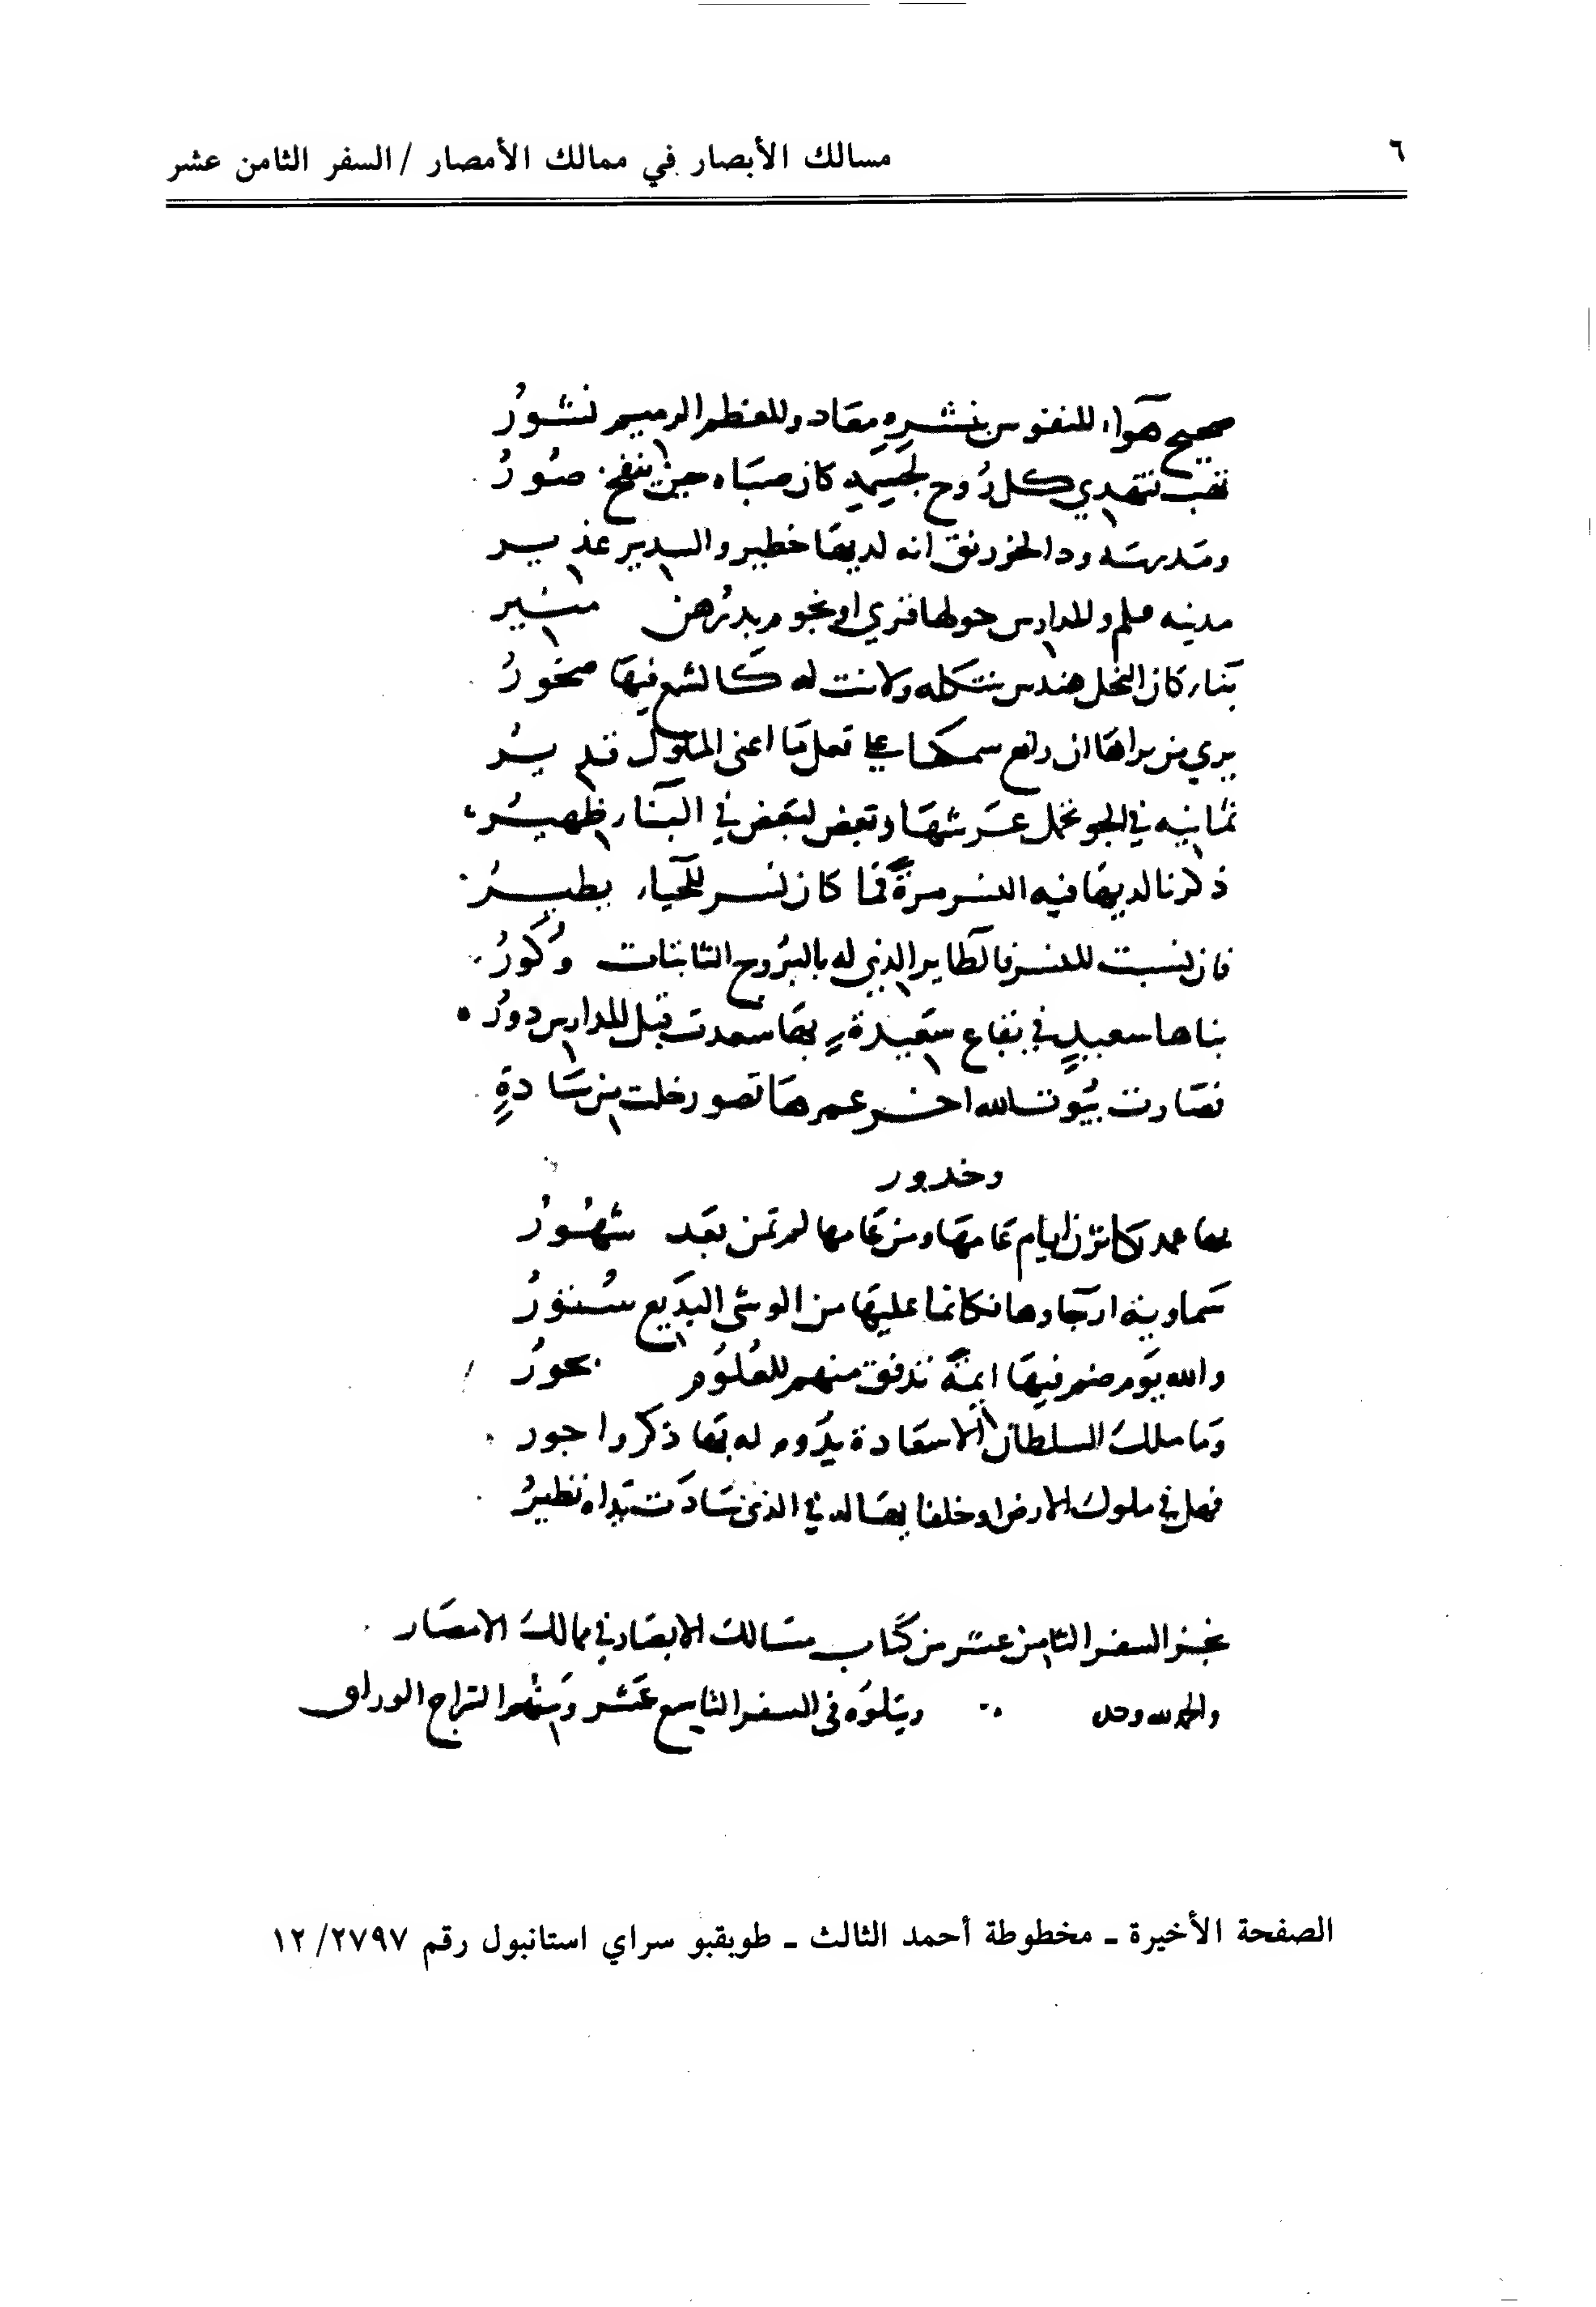 ٦
مسالك الأبصار في ممالك الأمصار / السفر الثامن عشر
صحيح هواء للنفوس بنشره معاد وللعظم الرميم نشور
تهب فتهدي كل روح لجسمه كان صباه حين ينفخ صور
ومدرسة ود الخورنق انه لديها خطير والسدير غدير
مدينه علم والمدارس حولها قرى او نجوم بدرهن منير
بناء كان النحل هندس شكله ولانت له كالشمع فيها صخور
يرى من يراها ان رافع سمكها على فعل ما اعيى الملوك قدير
ثمانيه في الجو تحمل عرشها وبعض لبعض في البناء ظهير
ذكرنا لديها قبة النسر مرة فما كاد نسر للحياء يطير
فان نسبت للنسر فالطاير الذي له بالبروج الثابتات وكور
بناها سعيد في بقاع سعيدة بها سعدت قبل المدارس دور
فصارت بيوت الله اخر عمرها قصور خلت من سادة
وخدور
بها عمد كاثرن ايام عامها ومن عامها لم تمض بعد شهور
سماوية ارجاوها فكانما عليها من الوشي البديع ستور
والله يوم ضم فيها ايمة تدفق منهم للعلوم بحور
وما ملك السلطان الا سعادة يدوم له بها ذكر واجور
فهل في ملوك الارض او خلفا بها له في الذي شادت يداه نظير
نجز السفر الثامن عشر من كتاب مسالك الابصار في ممالك الامصار
والحمد لله وحده ويتلوه في السفر التاسع عشر ومنهم السراج الوراق
الصفحة الأخيرة ـ مخطوطة أحمد الثالث ـ طوبقبو سراي استانبول رقم ٢٧٩٧/ ١٢